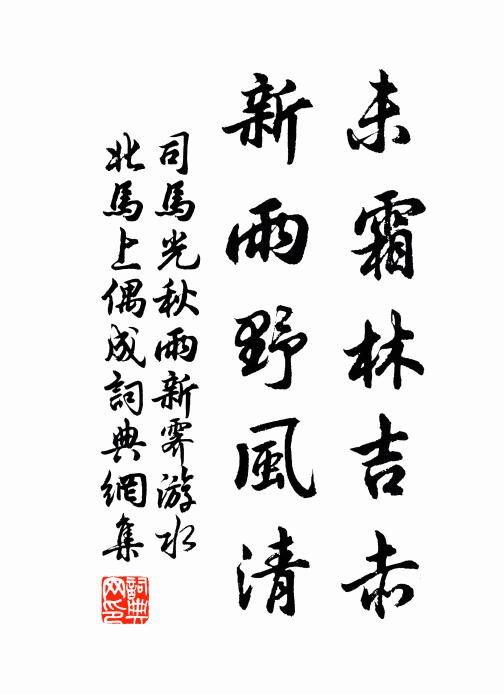 未霜林吉赤
新雨野風清
司馬光秋雨新霽游水
北馬上偶成詞典網集